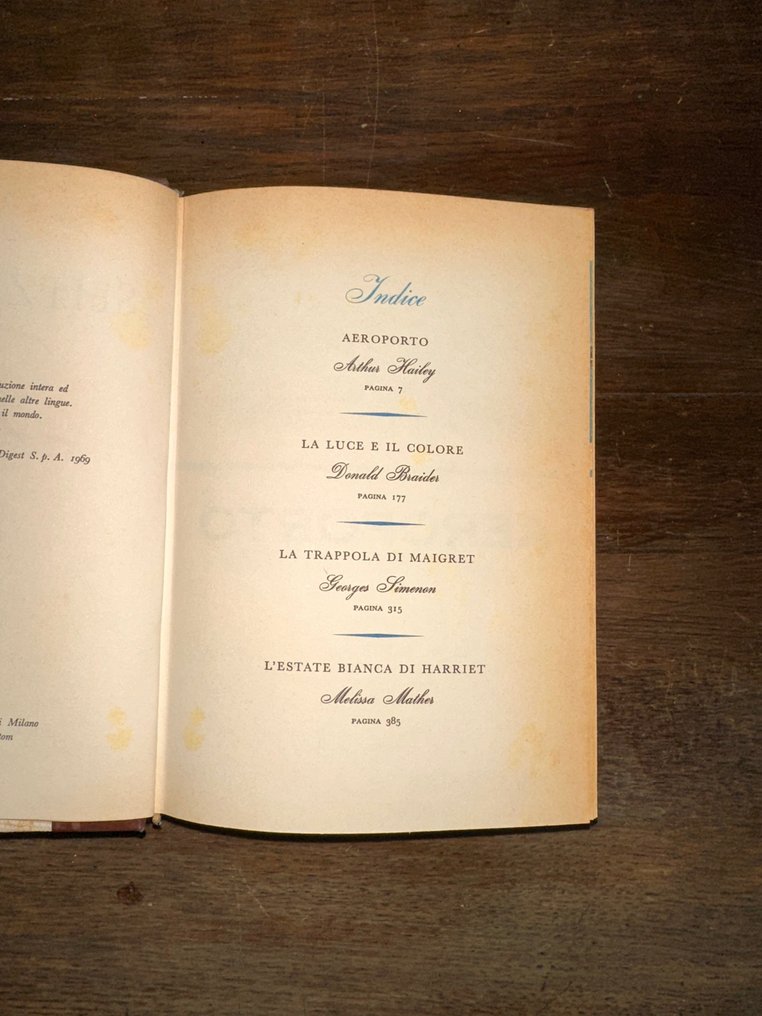 uzione intera ed
elle altre lingue.
il mondo.
Digest S. p. A. 1969
Milano
Indice
AEROPORTO
Arthur Hailey
PAGINA 7
LA LUCE E IL COLORE
Donald Braider
PAGINA 177
LA TRAPPOLA DI MAIGRET
Georges Simenon
PAGINA 315
L'ESTATE BIANCA DI HARRIET
Melissa Mather
PAGINA 385